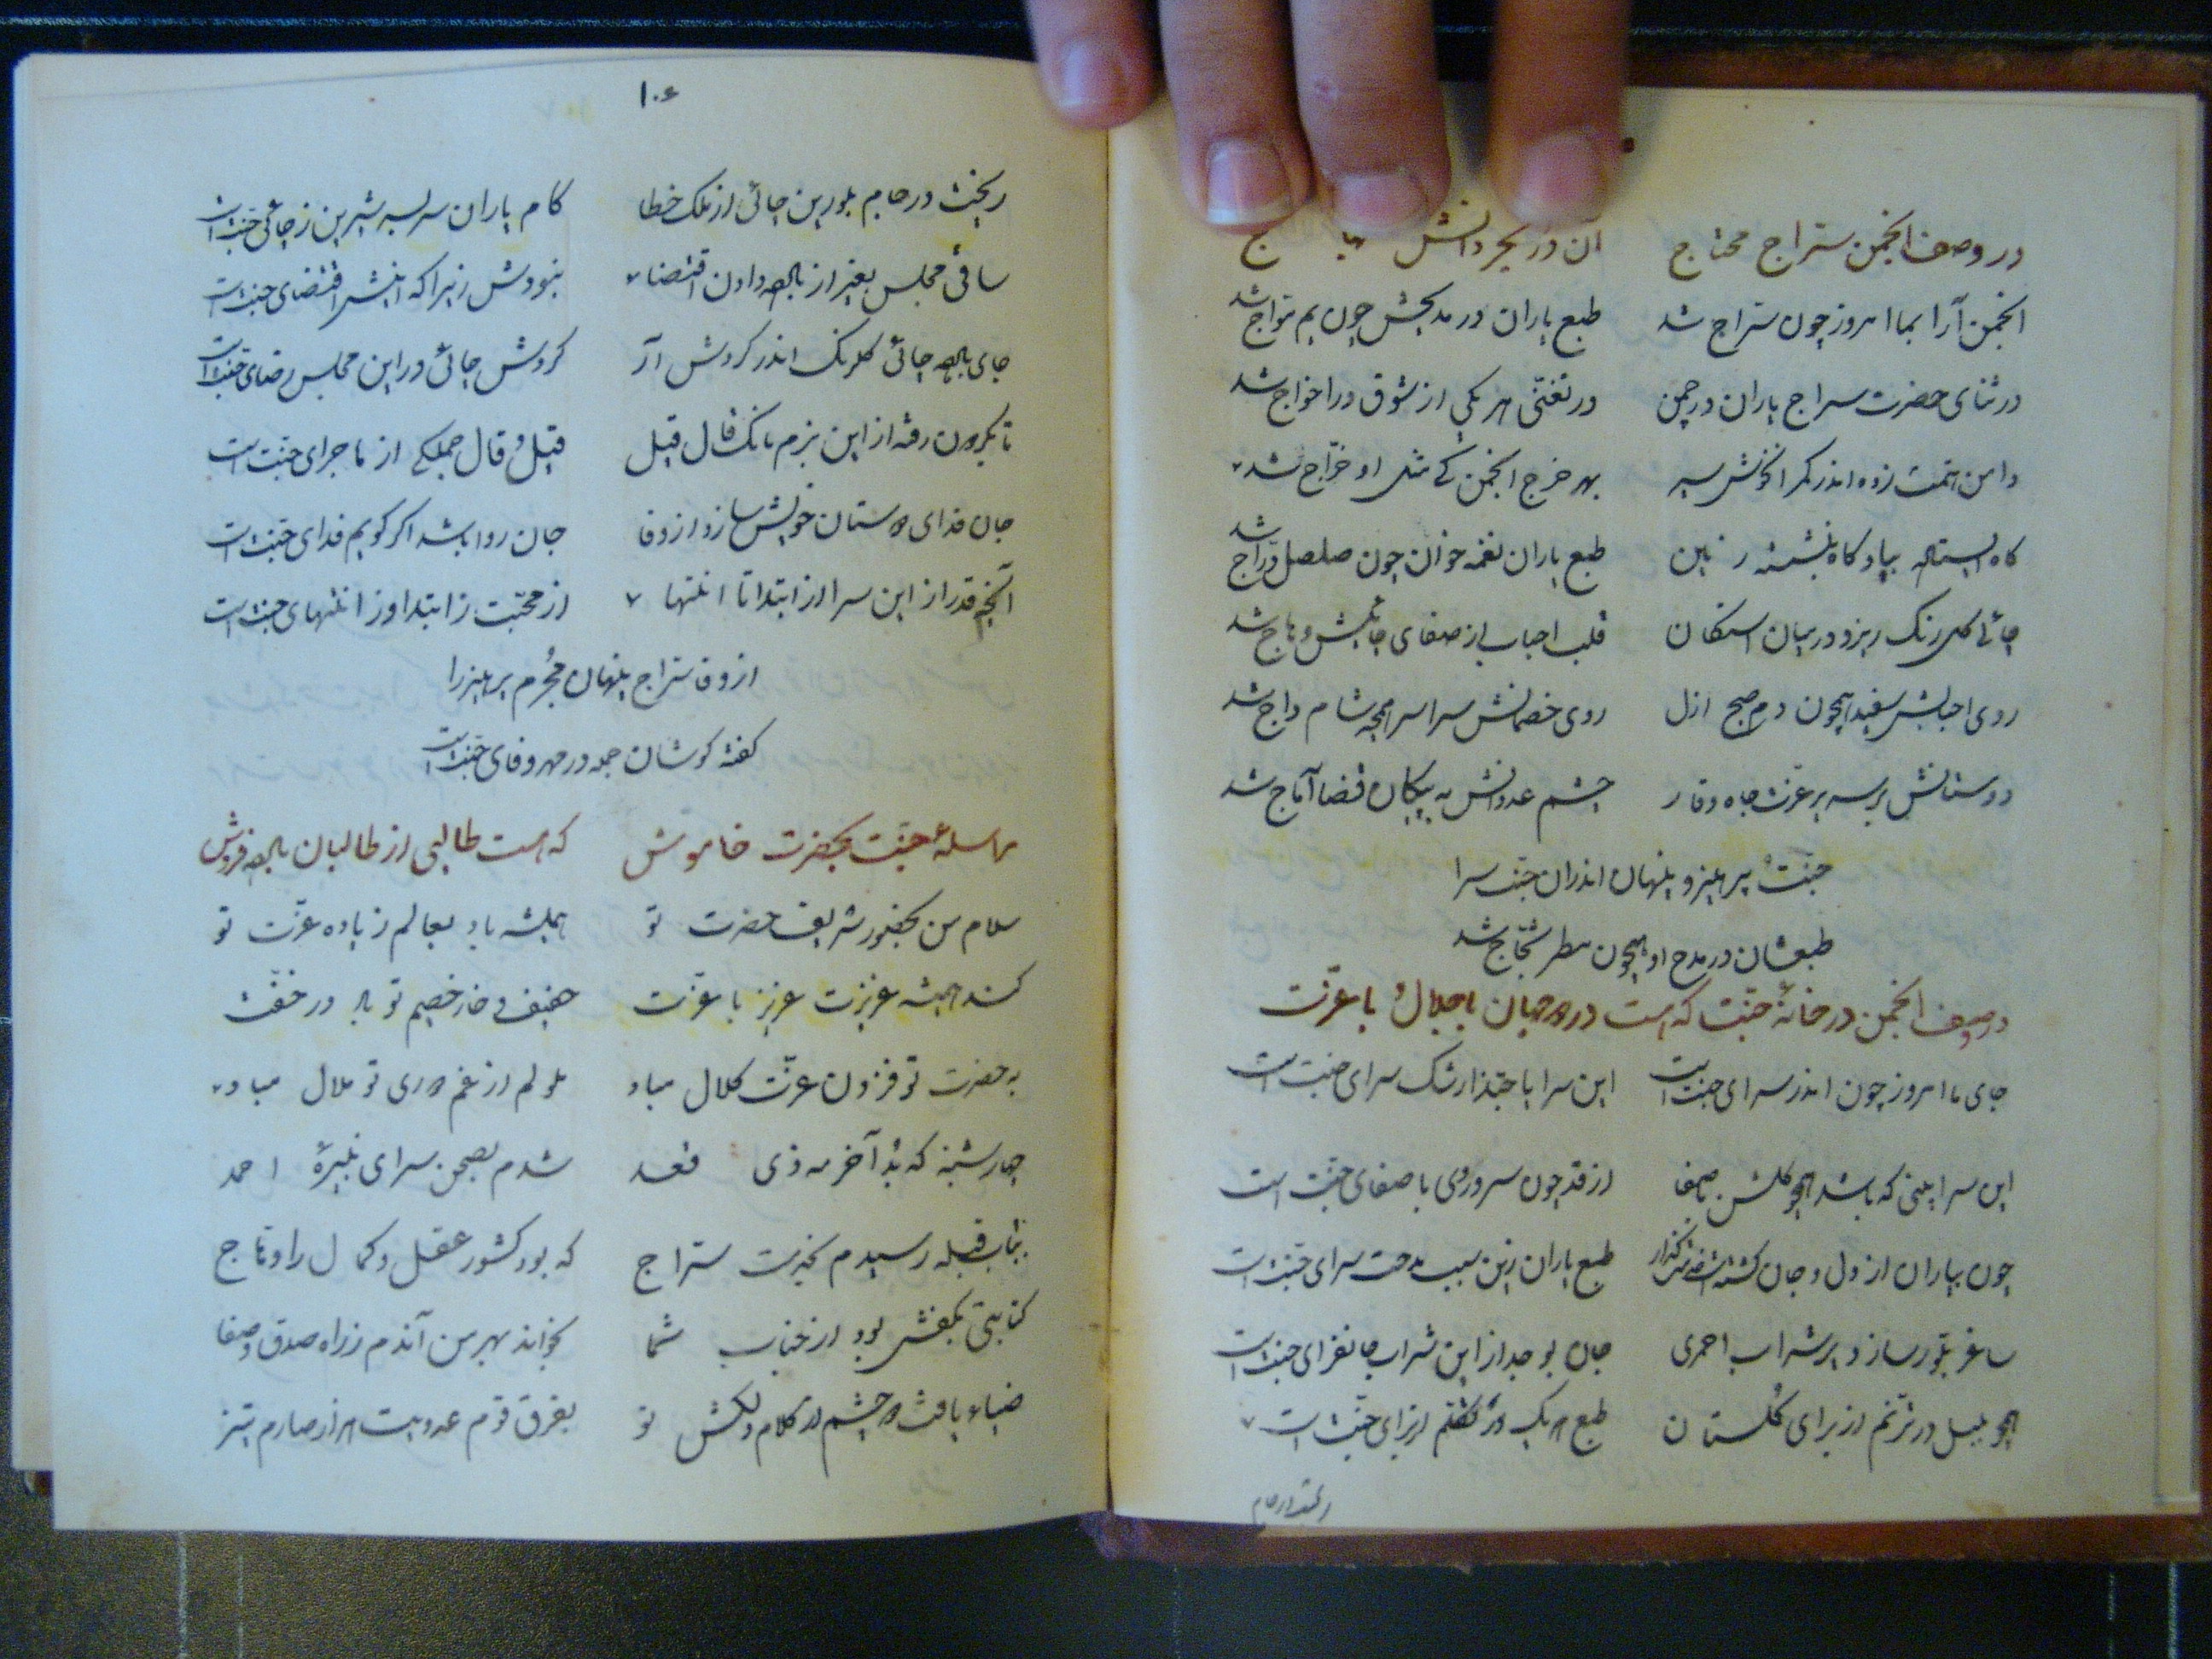 در وصف انجمن سراج محتاج آن در بحر دانش
انجمن آرا بما امروز چون سراج شد طبع یاران در مدیحش چون یم مواج شد
در ثنای حضرت سراج یاران در چمن در تغنی هر یکی از شوق دراخواج شد
دامن همت زده اندر کمر بهر خرج انجمن کی مثل او خراج شد
گاه بپا و گاه بنشسته طبع یاران نغمه خوان چون صلصل و دراج شد
چائی گلرنگ ریزد در میان استکان قلب احباب از صفای چائیش وهاج شد
روی احبابش سفید همچون دم صبح ازل روی خصمانش سراسر همچه شام داج شد
دوستانش بر سریر عزت و جاه و وقار چشم عدوانش به پیکان قضا آماج شد
جنت و پرهیز و پنهان اندران جنت سرا
طبعشان در مدح او همچون مطر ثجاج شد
در وصف انجمن در خانهٔ جنت که هست در دو جهان با جلال و با عزت
جای ما امروز چون اندر سرای جنت است این سرا یا حبذا رشک سرای جنت است
این سرا یعنی که باشد همچو گلشن با صفا از قد چون سرو روی با صفای جنت است
چون بیاران از دل و جان گشته خدمتگذار طبع یاران زین سبب مدحت سرای جنت است
ساغر بلور سازد پر شراب احمری جان بوجد از این شراب جانفزای جنت است
همچو بلبل در ترنم از برای گلستان طبع هر یک در تکلم از برای جنت است
ریخت در جام
۱۰۶
ریخت در جام بلورین چائی از ملک خطا کام یاران سر بسر شیرین ز چائی جنت است
ساقی مجلس بغیر از باده دادن اقتضا نبودش زیرا که اینش اقتضای جنت است
جای باده چائی گلرنگ اندر گردش آر گردش چائی در این مجلس رضای جنت است
تا بگردون رفته از این بزم بانگ قال قیل قیل و قال جملگی از ماجرای جنت است
جان فدای دوستان خویش سازد از وفا جان روا باشد اگر گویم فدای جنت است
آنچه قدر از این سرا از ابتدا تا انتها از محبت ز ابتدا و ز انتهای جنت است
از وفا سراج پنهان محرم پرهیز را
گفته گوشان جمه در مهر و وفای جنت است
مراسلهٔ جنت بحضرت خاموش که هست طالبی از طالبان باده فروش
سلام من بحضور شریف حضرت تو همیشه باد بعالم زیاده عزت تو
کند همیشه عزیزت عزیز با عزت خفیف و خار خصیم تو باد در خفت
به حضرت تو فزون عزت کلال مباد ملولم از غم دوری تو ملال مباد
چهارشنبه که بد آخر مه ذی قعد شدم بصحن سرای نبیرهٔ احمد
بباب قبله رسیدم بخدمت سراج که بود کشور عقل و کمال را او تاج
کتابتی بکفش بود از جناب شما بخواند بهر من آندم ز راه صدق و صفا
ضیاء یافت دو چشمم از کلام دلکش تو بفرق قوم عدویت هزار صارم تیز